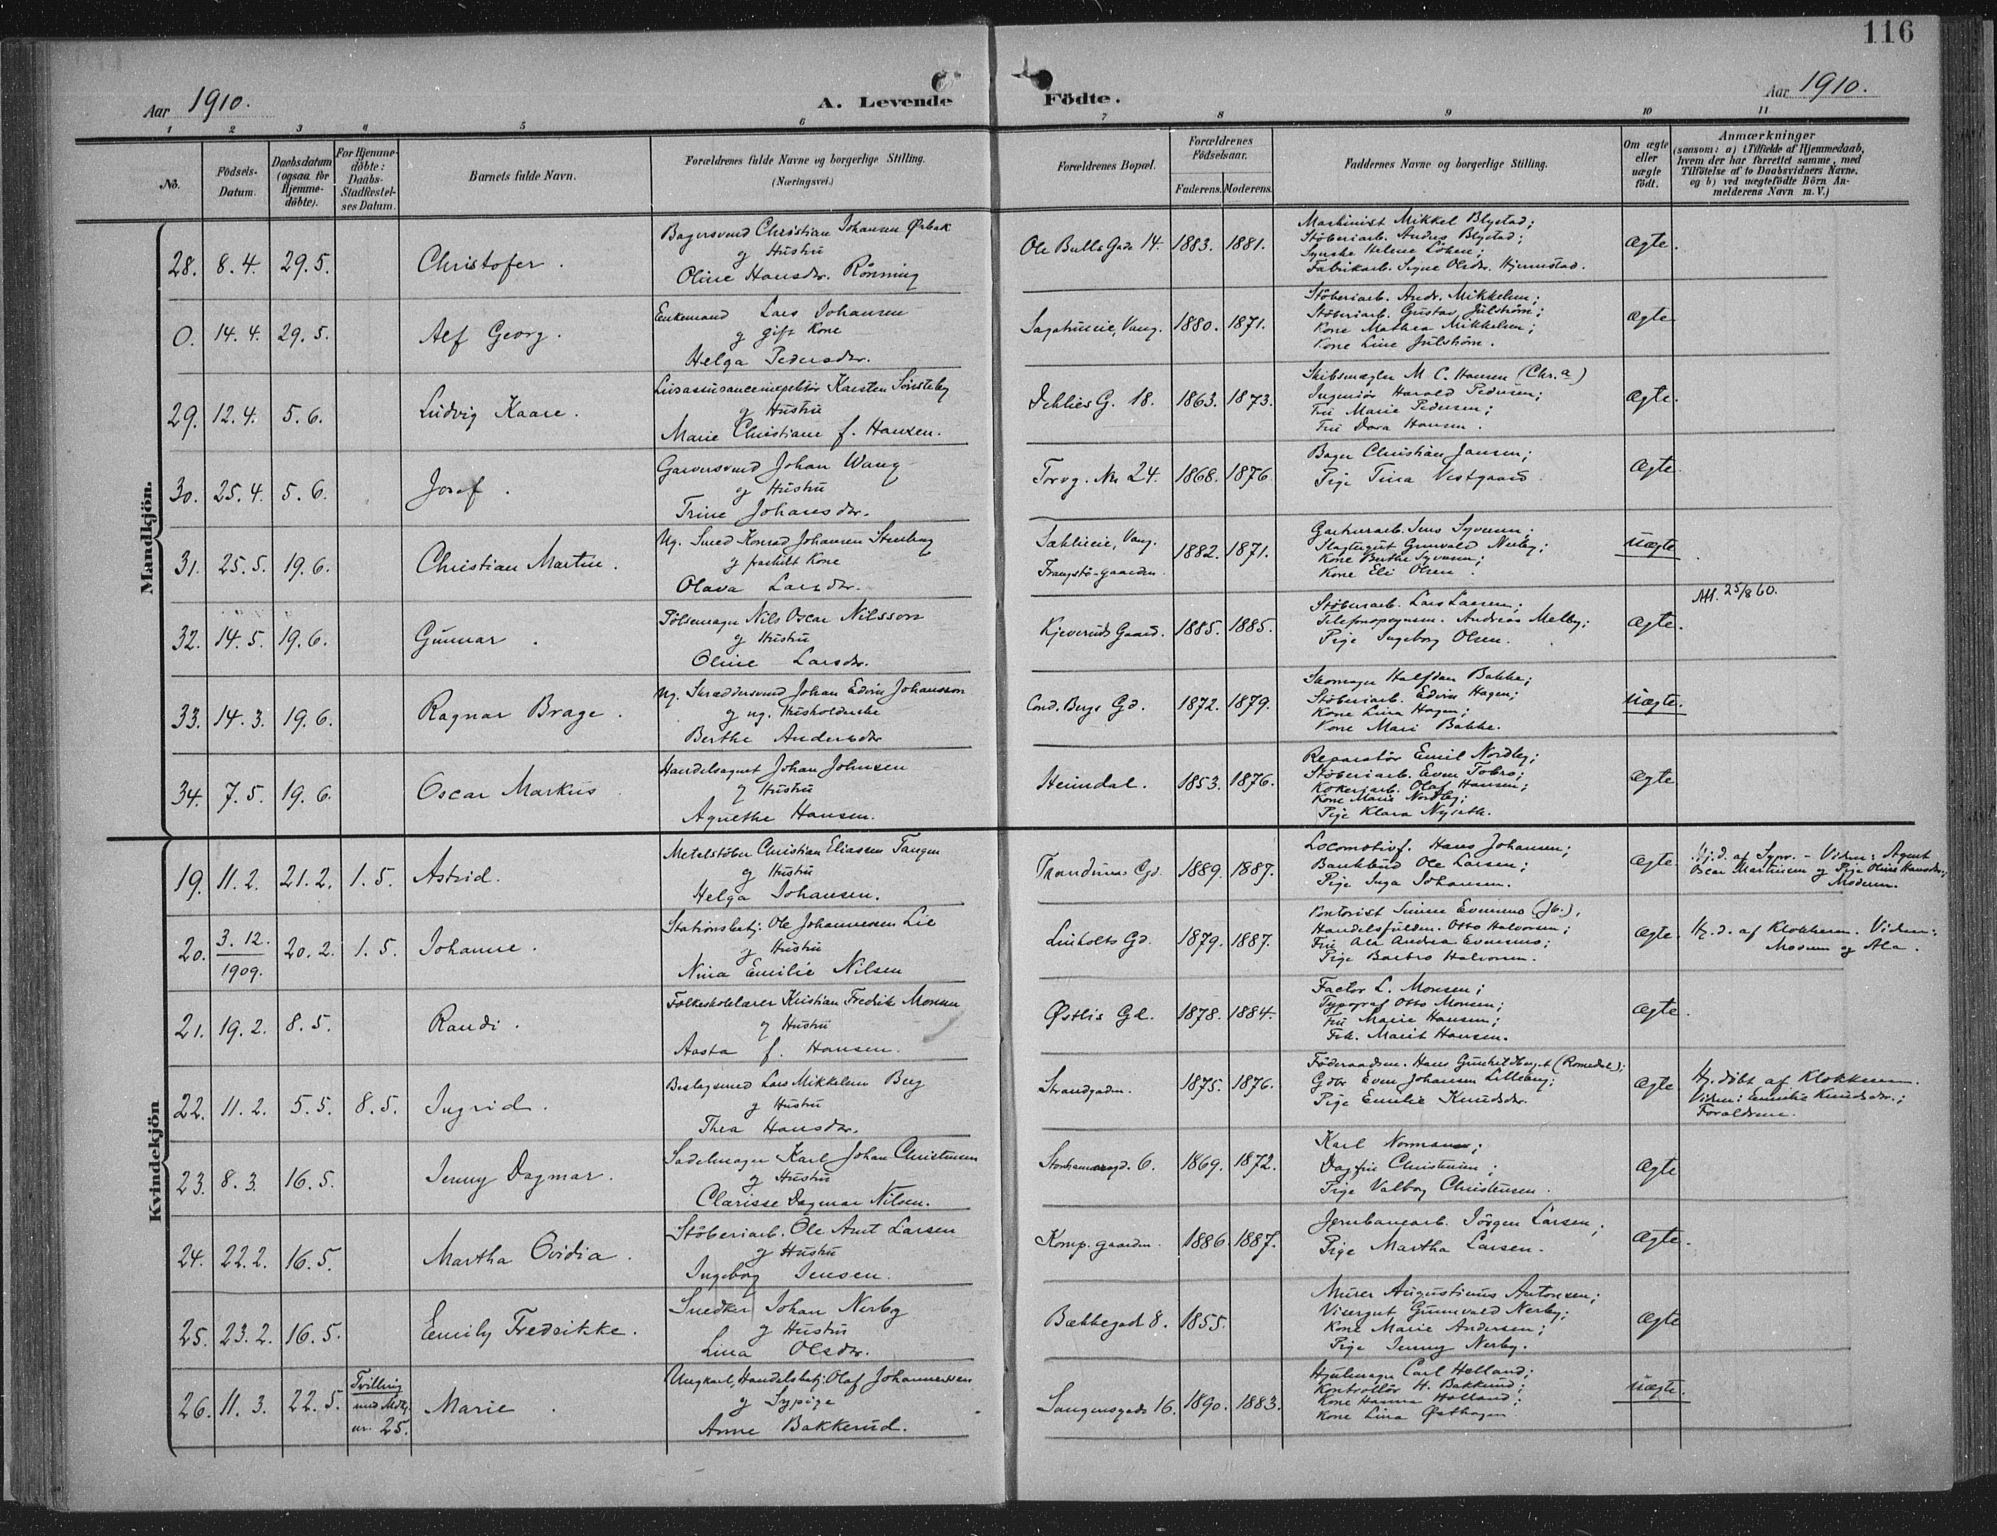 116
Aar 1910.
A. Levende Födte.
Aar 1910.
1 2 3 4 5 6 7 8 9 10 11
No.
Födsels-Datum.
Daabsdatum (ogsaa for Hjemme-döbte).
For Hjemme-döbte: Daabs-Stadfestel-ses Datum.
Barnets fulde Navn.
Forældrenes fulde Navne og borgerlige Stilling. (Næringsvei.)
Forældrenes Bopæl.
Forældrenes Födselsaar.
Faderens. Moderens.
Faddernes Navne og borgerlige Stilling.
Om ægte eller uægte født.
Anmærkninger
(saasom: a) i Tilfælde af Hjemmedaab, hvem der har forrettet samme, med Tilföielse af to Daabsvidners Navne, og b) ved uægtefödte Börn An-melderens Navn m. V.)
Mandkjön.
28. 8.4. 29.5. Christofer.
Bagersvend Christian Johansen Ørbak
og Hustru
Oline Hansdr. Rönning
Ole Bulls Gade 14. 1883. 1881.
Maskinist Mikkel Blystad;
Støberiarb. Andres Blystad;
Syerske Helene Löken;
Fabrikarb. Signe Olsdr. Hjemstad.
Ægte.
0. 14.4. 29.5. Alf Georg.
Enkemand Lars Johansen
og gift Kone
Helga Pedersdr.
Vang. 1880. 1871.
Støberiarb. Andr. Mikkelsen;
Støberiarb. Gustav Julström;
Kone Mathea Mikkelsen;
Kone Line Julström.
Ægte
29. 12.4. 5.6. Ludvig Kaare.
Karsten Sörsteby
og Hustru
Marie Christiane f. Hansen.
G. 18. 1863. 1873.
Skibsmægler M. C. Hansen (Chr.a)
Ingeniör Harald Pedersen;
Fru Marie Pedersen;
Fru Dora Hansen.
Ægte.
30. 25.4. 5.6. Josef.
Garversvend Johan Wang
og Hustru
Trine Johansdr.
Torvg. No 24. 1868. 1876
Bager Christian Jansen;
Pige Tina Vestgaard
Ægte.
31. 25.5. 19.6. Christian Martin.
Ug. Smed Konrad Johansen Stenberg
og fraskilt Kone
Olava Larsdr.
Vang.
1882. 1871.
Gartnerarb. Jens Syversen;
Slagtergut Gunvald Nerby;
Kone Berthe Syversen;
Kone Eli Olsen
Uægte
32. 14.5. 19.6. Gunnar.
Pölsemager Nils Oscar Nilsson
og Hustru
Oline Larsdr.
Kjeveruds Gaard. 1885. 1885.
Støberiarb. Lars Larsen;
Andreas Melby;
Pige Ingeborg Olsen.
Ægte.
Att. 25/8 60.
33. 14.3. 19.6. Ragnar Brage.
Ug. Skræddersvend Johan Edvin Johansson
og ug. Husholderske
Berthe Andersdr
Cond. Bergs Gd. 1872. 1879.
Skomager Halfdan Bakke;
Støberiarb. Edvin Hagen;
Kone Lina Hagen;
Kone Mari Bakke.
Uægte.
34. 7.5. 19.6. Oscar Markus
Handelsagent Johan Johnsen
og Hustru
Agnethe Hansen.
Heimdal. 1853. 1876.
Reparatör Emil Nordby;
Støberiarb. Even Tobro;
Kokeriarb. Olaf Hansen;
Kone Marie Nordby;
Pige Klara Nyseth.
Ægte
Kvindekjön
19. 11.2. 21.2. 1.5. Astrid.
Metalstöber Christian Eliassen Tangen
og Hustru
Helga Johansen.
Gd. 1889. 1887.
Locomotivf. Hans Johansen;
Bankbud Ole Larsen;
Pige Inga Johansen.
Ægte
Hj.d. af Sypr. - Vidner: Agent
Oscar Martinsen og Pige Oline Hansdr;
Moderen.
20. 3.12. 1909. 20.2. 1.5. Johanne.
Stationsbetj. Ole Johannessen Lie
og Hustru
Nina Emilie Nilsen
Linholts Gd. 1879. 1887.
Otto Halvorsen;
Pige Barbro Halvorsen.
Ægte.
Hj.d. af Klokkeren. Vidner:
Moderen og Ala.
21. 19.2. 8.5. Randi.
Folkeskolelærer Kristian Fredrik Monsen
og Hustru
Aasta f. Hansen.
Østlis Gd. 1878. 1884.
Factor L. Monsen;
Typograf Otto Monsen;
Fru Marie Hansen;
Frk. Marit Hansen.
Ægte.
22. 11.2. 5.5. 8.5. Ingrid.
Lars Mikkelsen Berg
og Hustru
Thea Hansdr.
Strandgaden. 1875. 1876.
Föderaadsm. Hans Gunhildberget (Romedal);
Gdbr Even Johansen Lilleeng;
Pige Emilie Knudsdr.
Ægte
Hj. döbt af Klokkeren.
Vidner: Emilie Knudsdr.;
Forældrene.
23. 8.3. 16.5. Jenny Dagmar.
Sadelmager Karl Johan Christensen
og Hustru
Clarisse Dagmar Nilsen.
Storhamargd. 6. 1869. 1872.
Karl Normann;
Dagfin Christensen;
Pige Valborg Christensen.
Ægte
24. 22.2. 16.5. Martha Ovidia.
Stöberiarb. Ole Amt Larsen
og Hustru
Ingeborg Jensen.
Komp.gaarden. 1886. 1887.
Jernbanearb. Jörgen Larsen;
Pige Martha Larsen.
Ægte.
25. 23.2. 16.5. Emily Fredrikke.
Snedker Johan Nerby
og Hustru
Lina Olsdr.
Bækkegade 8. 1855.
Murer Augustinus Antonsen;
Visergut Gunnvald Nerby;
Kone Marie Andersen;
Pige Jenny Nerby.
Ægte
26. 11.3. 22.5. Tvilling med Mdkj. nr. 25. Marie.
Ungkarl, Handelsbetj. Olaf Johannessen
og Sypige
Anne Bakkerud.
Sangensgade 16. 1890. 1883.
Hjulmager Carl Helland;
Kontrollör H. Bakkerud;
Kone Hanna Holland;
Kone Lina Østhagen
Uægte.